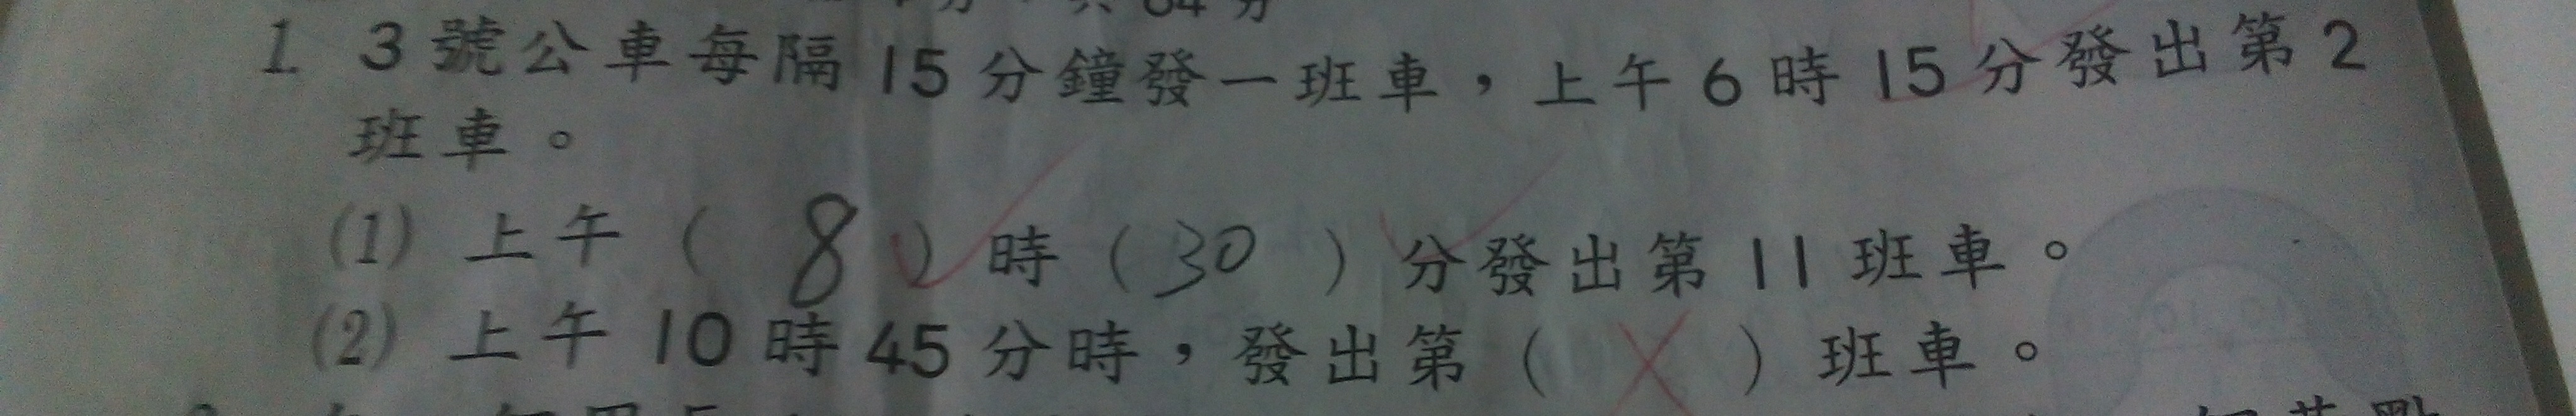 分，共64分
1. 3號公車每隔15分鐘發一班車，上午6時15分發出第2
班車。
(1) 上午( 8 )時(30 )分發出第11班車。
(2) 上午10時45分時，發出第( )班車。